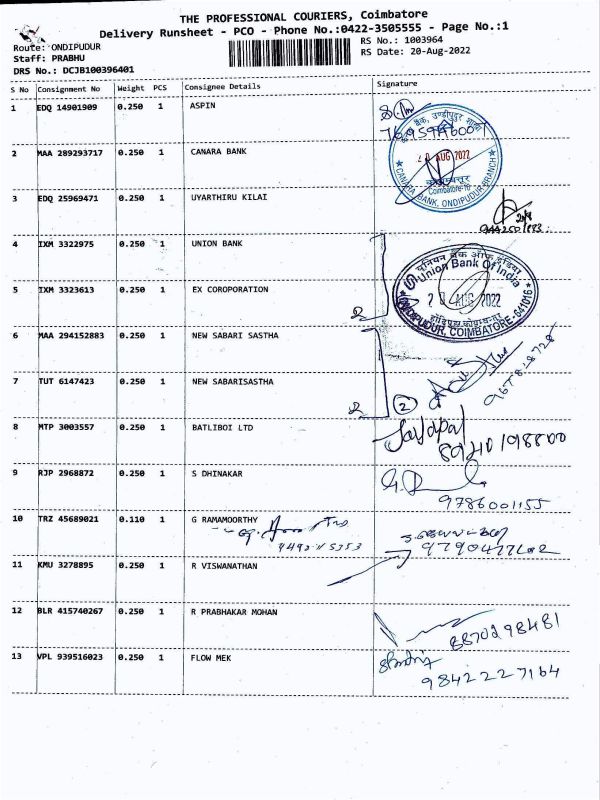 THE PROFESSIONAL COURIERS, Coimbatore
Delivery Runsheet - PCO - Phone No.:0422-3505555 - Page No.:1
Route: ONDIPUDUR
RS No.: 1003964
Staff: PRABHU
RS Date: 20-Aug-2022
DRS No.: DCJB100396401
S No Consignment No Weight PCS Consignee Details Signature
1 EDQ 14901909 0.250 1 ASPIN
2 MAA 289293717 0.250 1 CANARA BANK
AUG 2022
Coimbatore
CANARA BANK, ONDIPUDUR BRANCH
3 EDQ 25969471 0.250 1 UYARTHIRU KILAI
4 IXM 3322975 0.250 1 UNION BANK
यूनियन बैंक ऑफ इंडिया
Union Bank Of India
AUG 2022
ONDIPUDUR, COIMBATORE-641016
5 IXM 3323613 0.250 1 EX COROPORATION
6 MAA 294152883 0.250 1 NEW SABARI SASTHA
7 TUT 6147423 0.250 1 NEW SABARISASTHA
2
8 MTP 3003557 0.250 1 BATLIBOI LTD
9 RJP 2968872 0.250 1 S DHINAKAR
9786001155
10 TRZ 45689021 0.110 1 G RAMAMOORTHY
11 KMU 3278895 0.250 1 R VISWANATHAN
12 BLR 415740267 0.250 1 R PRABHAKAR MOHAN
8870298481
13 VPL 939516023 0.250 1 FLOW MEK
9842227164